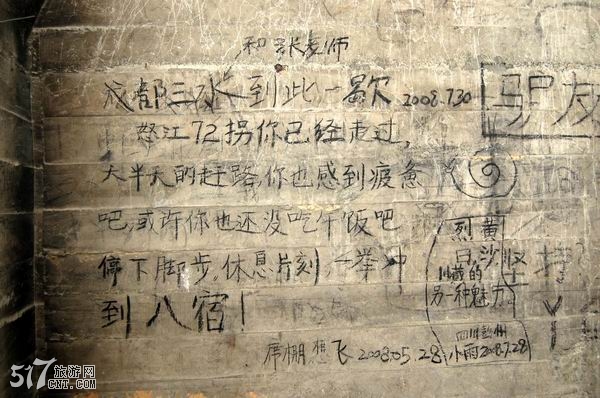 和张老师
成都三水到此一歇 2008.7.30
怒江72拐你已经走过,
大半天的赶路,你也感到疲惫
吧,或许你也还没吃午饭吧
停下脚步,休息片刻,一举冲
到八宿!
席棚 想飞 2008.05.28
驴友
烈黄
日,沙
川藏的
另一种魅力
四川彭州
小雨2008.7.28
坚持
517旅游网
CXT.COM